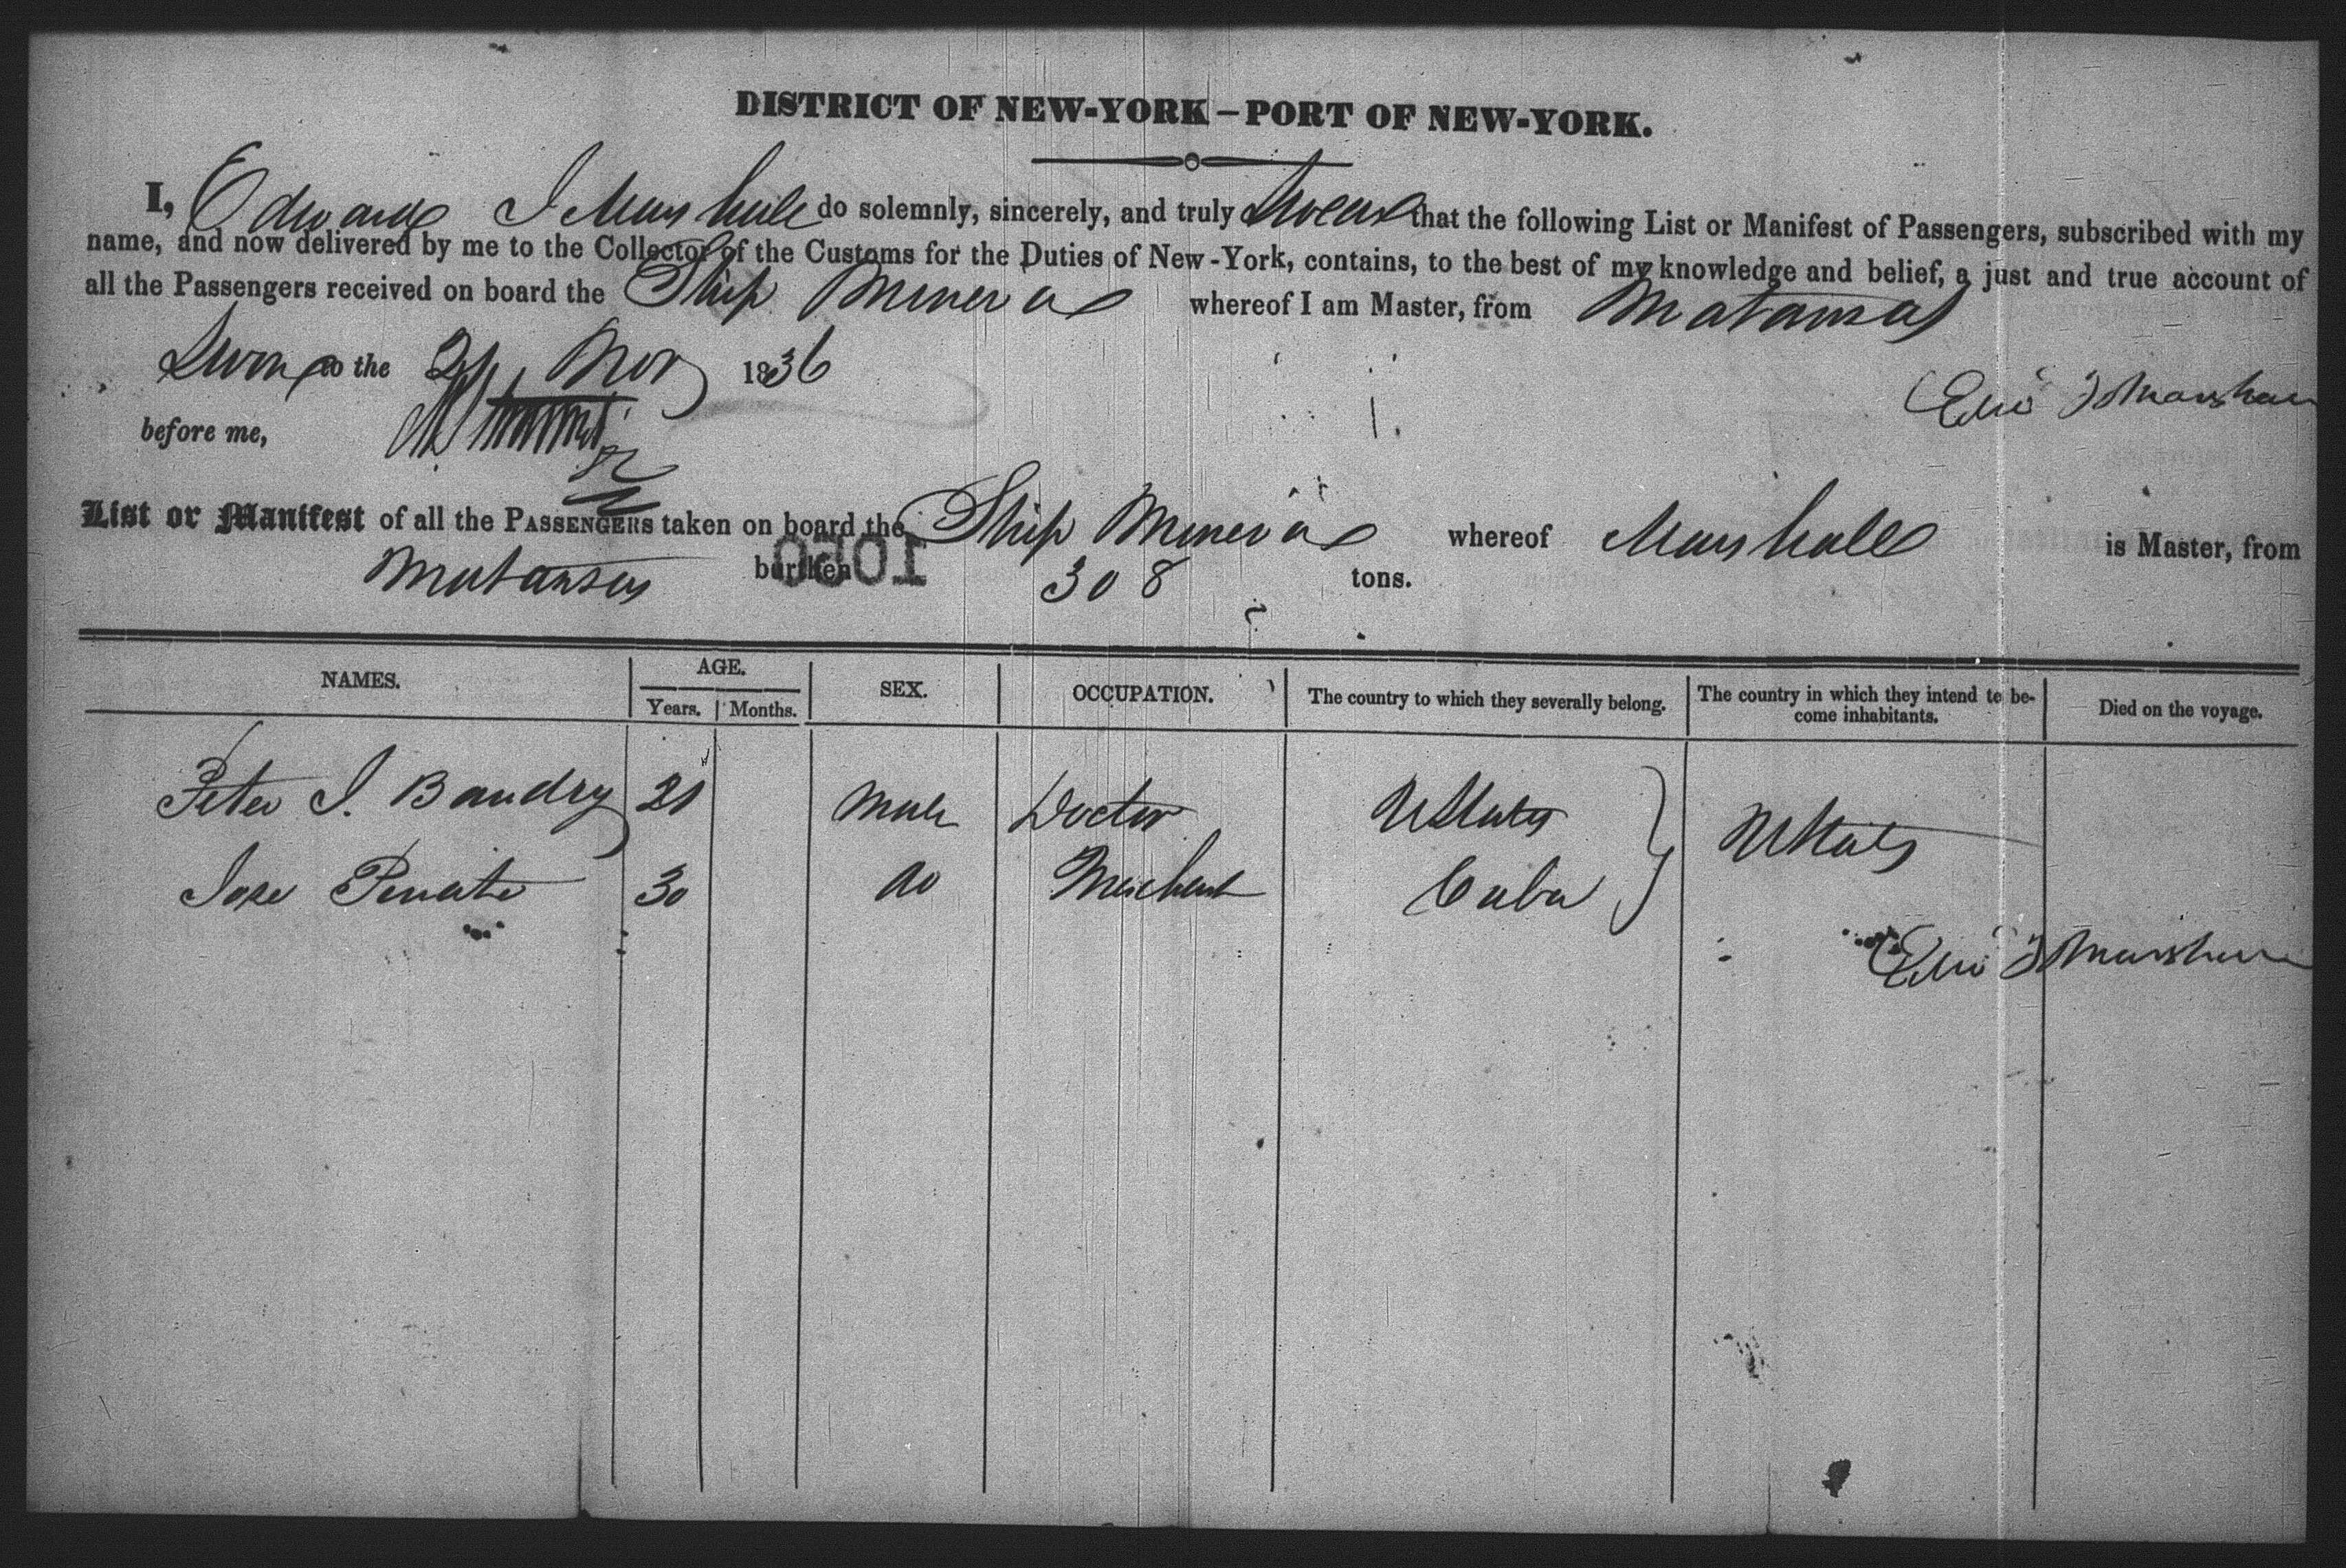 DISTRICT OF NEW-YORK – PORT OF NEW-YORK.
I, Edward J Marshall do solemnly, sincerely, and truly Swear that the following List or Manifest of Passengers, subscribed with my
name, and now delivered by me to the Collector of the Customs for the Duties of New-York, contains, to the best of my knowledge and belief, a just and true account of
all the Passengers received on board the Ship Minerva whereof I am Master, from Matansas
Sworn to the 21 Nov 1836
Edw J Marshall
before me,
List or Manifest of all the PASSENGERS taken on board the Ship Minerva whereof Marshall is Master, from
Matansas burthen 308 tons.
NAMES. AGE. SEX. OCCUPATION. The country to which they severally belong. The country in which they intend to be-
come inhabitants. Died on the voyage.
Years. Months.
Peter J. Baudry 21 Male Doctor UStates UStates
Jose Penate 30 do Merchant Cuba
Edw J Marshall